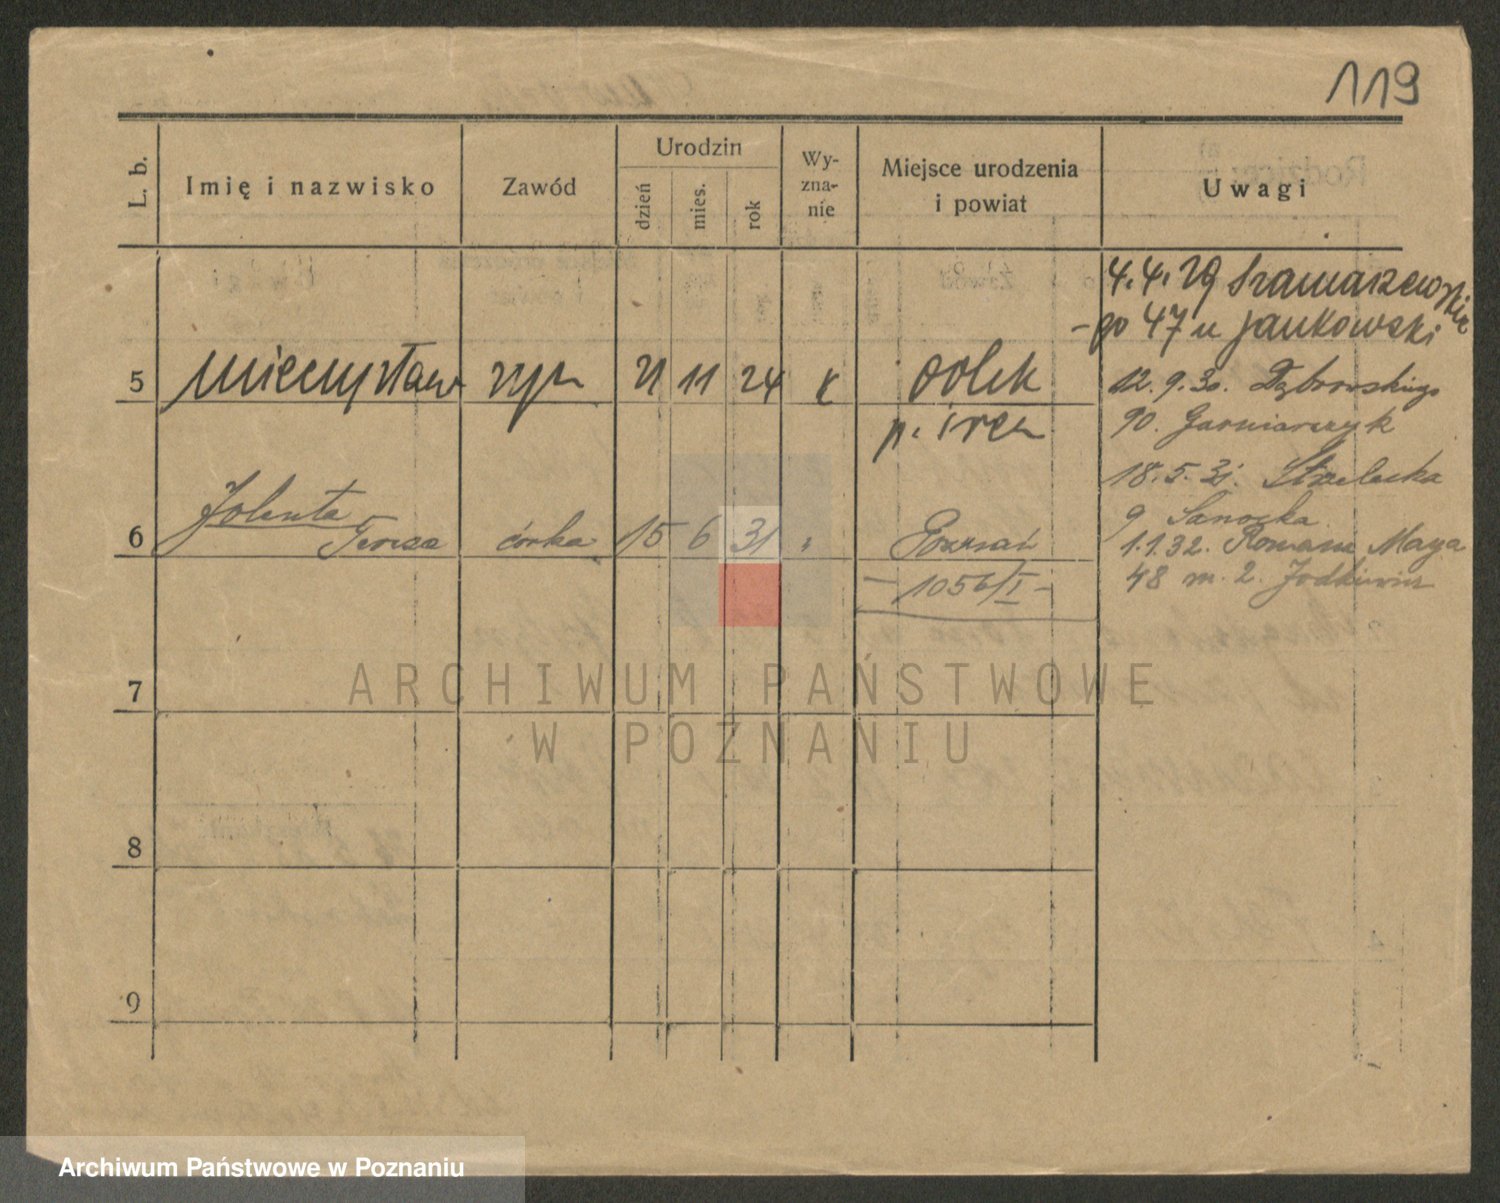 119
L. b.
Imię i nazwisko
Zawód
Urodzin
dzień
mies.
rok
Wy-
zna-
nie
Miejsce urodzenia
i powiat
Uwagi
4. 4. 29
47 u Jankowski
5 Mieczysław syn 21 11 24 k
12. 9. 30. Dąbrowskiego
90. Garniarczyk
18. 5. 31. Strzelecka
6 Jolenta
Teresa córka 15 6 31 " Poznań
9 Sanocka
1.1.32. Romana Maya
48 m. 2. Jodkiewicz
- 1056/I -
7
8
9
ARCHIWUM PAŃSTWOWE
W POZNANIU
Archiwum Państwowe w Poznaniu